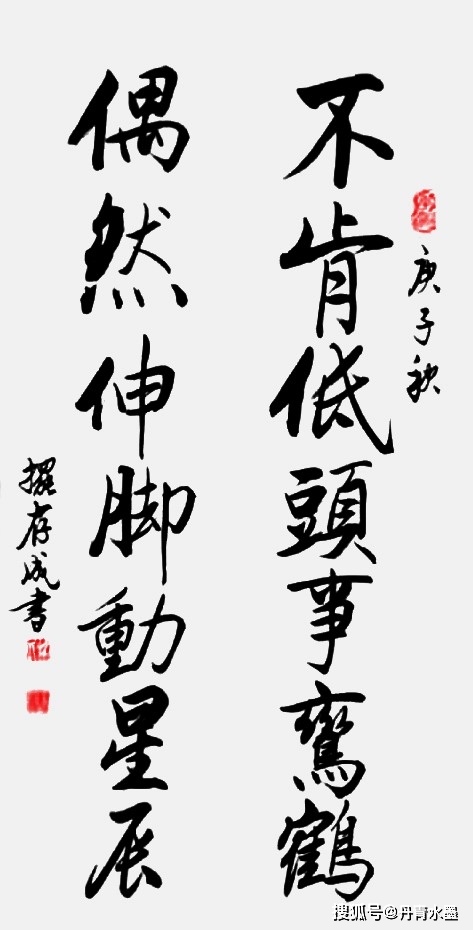 庚子秋
不肯低頭事鸞鶴
偶然伸脚動星辰
存成書
搜狐号@丹青水墨